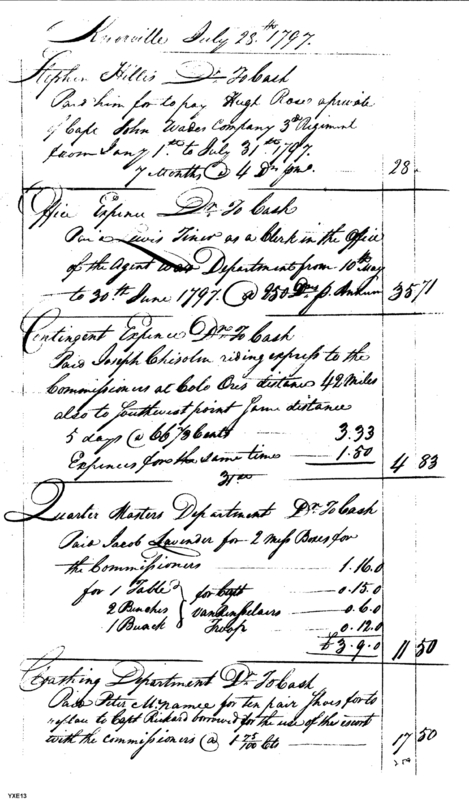 Knoxville July 28.th 1797.
Stephen Hillis Dr. To Cash
Paid him for to pay Hugh Rose a private
of Capt John Wades Company 3d Regiment
from Jany 1st to July 31st 1797.
7 Months @ 4 Drs 28.
Office Expence Dr. To Cash
Paid Lewis Tiner as a Clerk in the Office
of the Agent War Department from 10th May
to 30th June 1797. @ 250 Drs p. Annum 35 71
Contingent Expence Dr. To Cash
Paid Joseph Chisolm riding express to the
Commissioners at Colo Ores distance 42 Miles
also to Southwest point same distance
5 days @ 66 2/3 Cents 3.33
Expences for the same time 1.50 4 83
31st
Quarter Masters Department Dr. To Cash
Paid Jacob Lavender for 2 mess Boxes for
the Commissioners 1.16.0
for 1 Table for Capt 0.15.0
2 Bunches VanRensselaers 0.6.0
1 Bunck Troop 0.12.0
£3.9.0 11 50
Department Dr. To Cash
Paid Peter McNamee for ten pair Shoes for to
replace to Capt Richard borrowed for the use of the escort
with the commissioners @ 1 75/100 Cts 17 50
YXE13